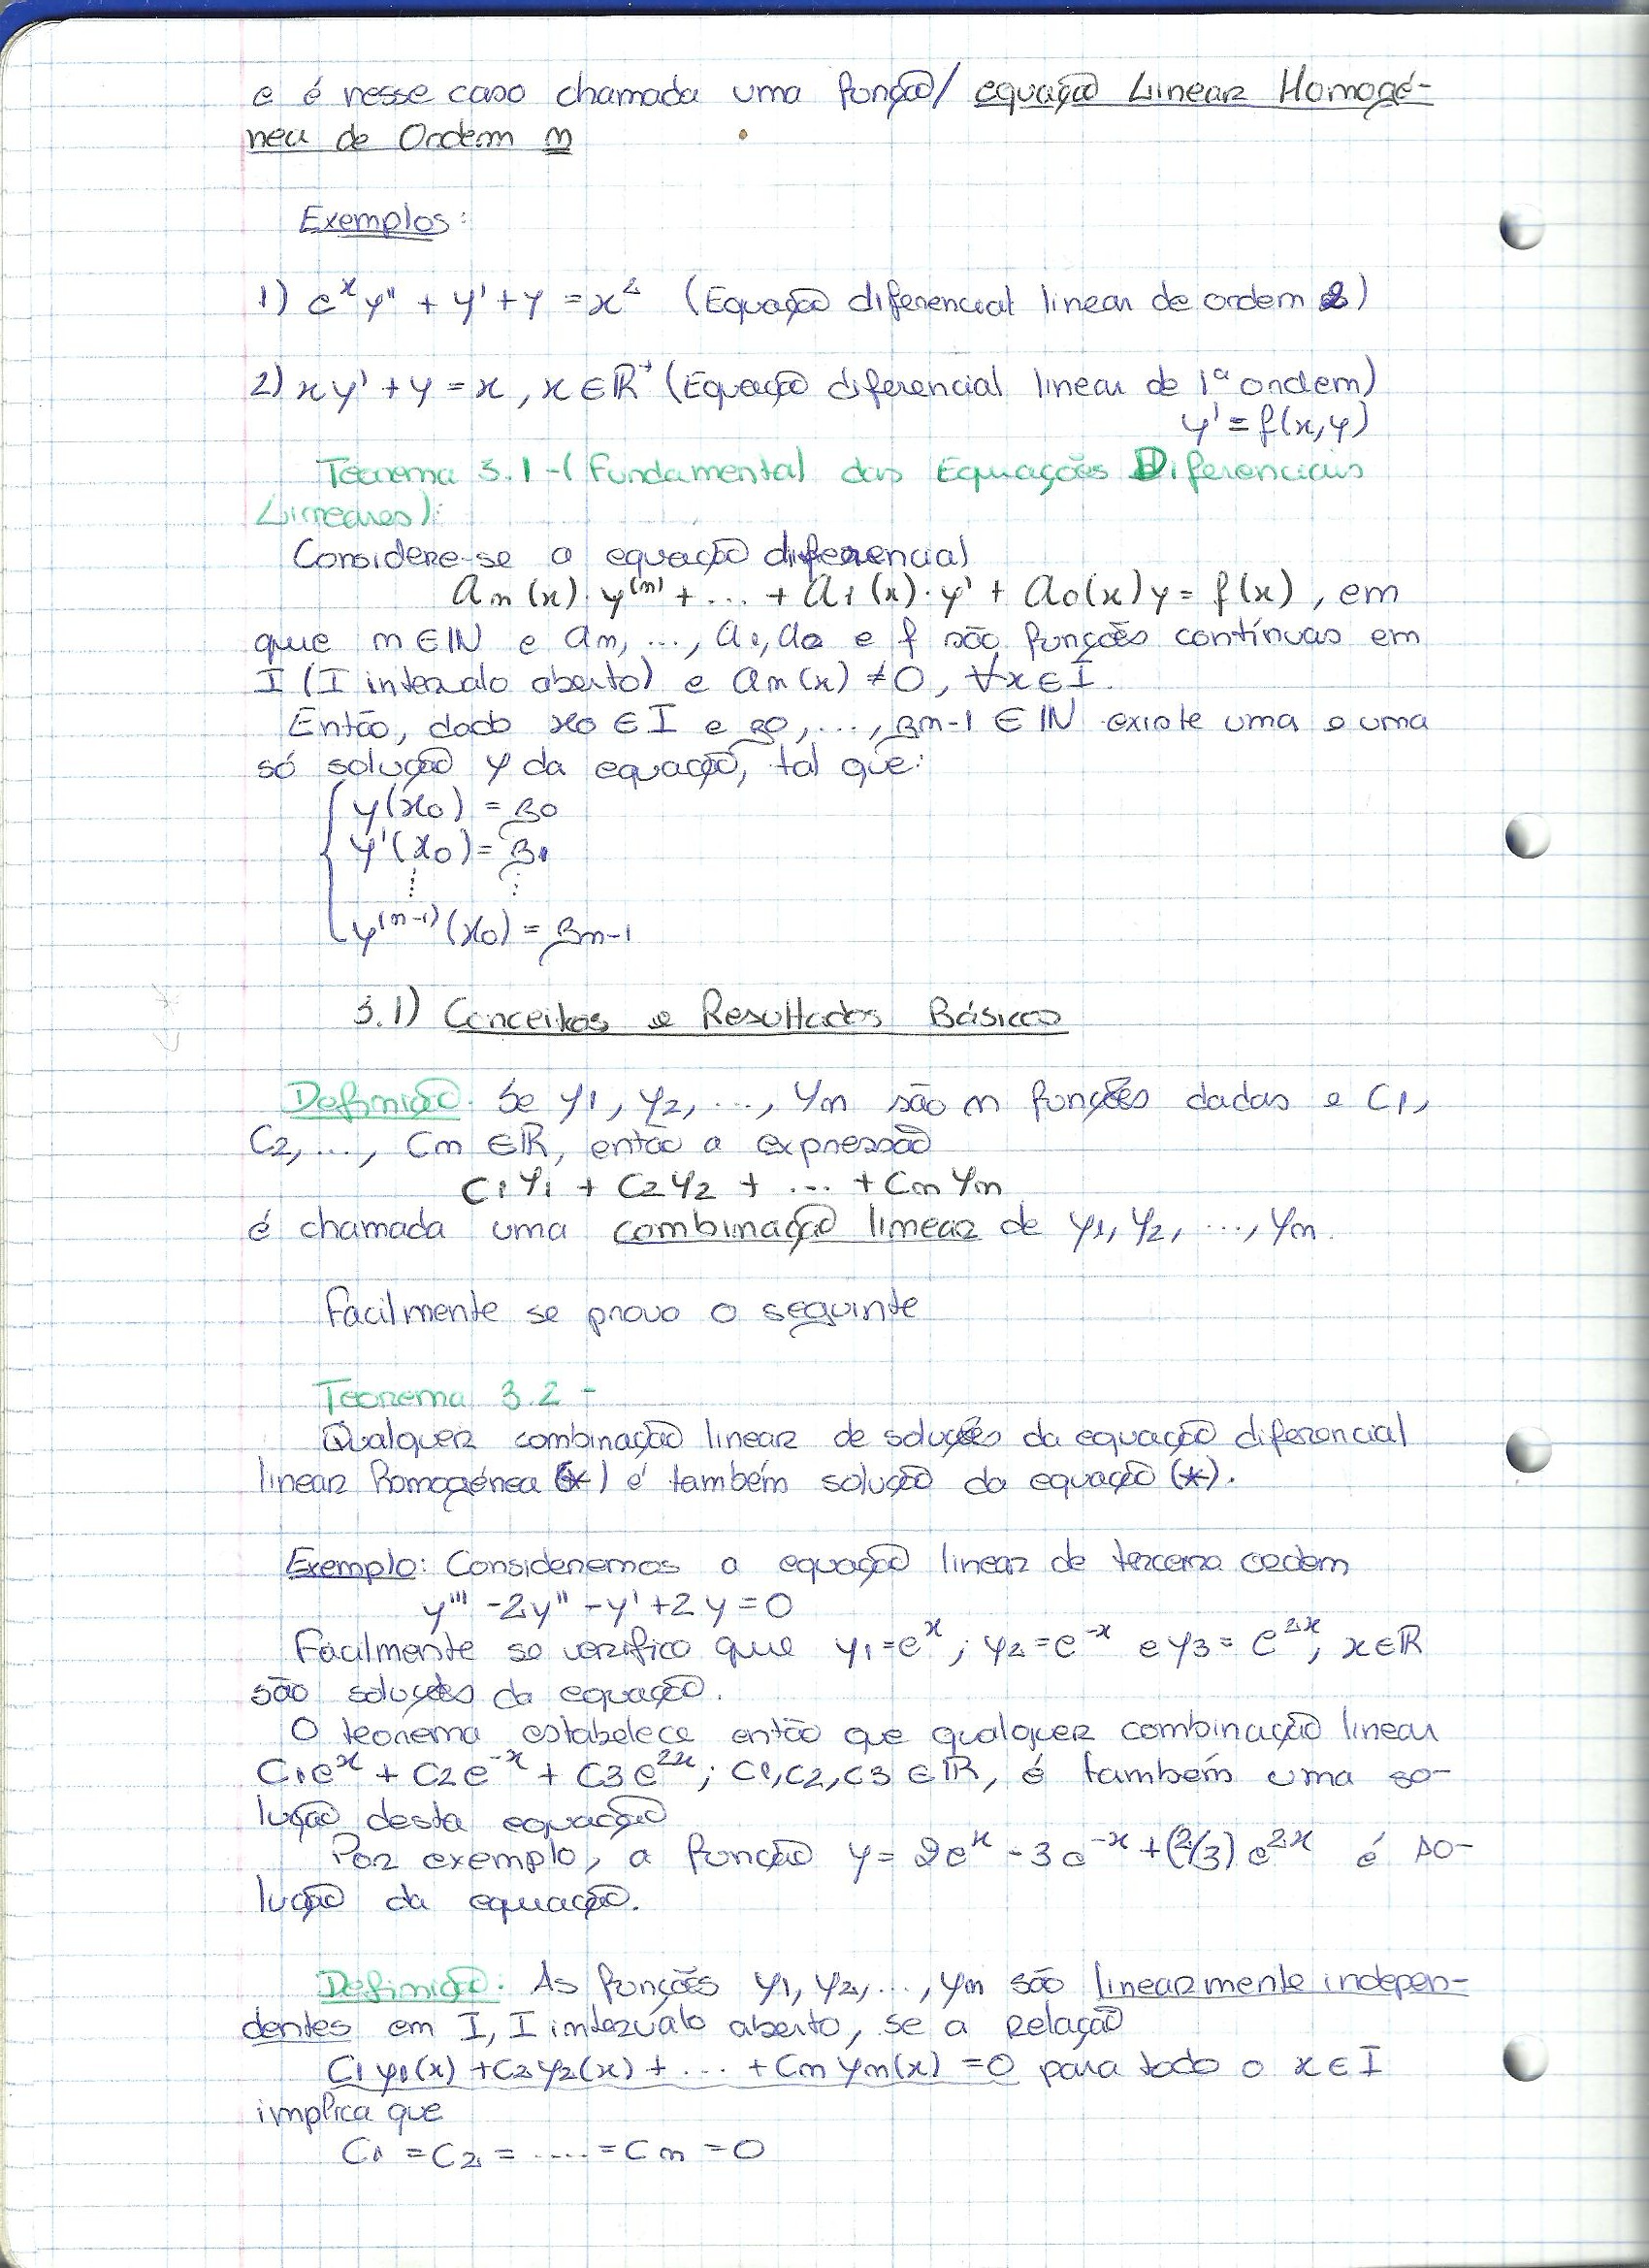 e é nesse caso chamada uma função/ equação Linear Homogé-
nea de Ordem n
Exemplos:
1) eˣy'' + y' + y = x² (Equação diferencial linear de ordem 2)
2) xy' + y = x, x ∈ ℝ⁺ (Equação diferencial linear de 1ª ordem)
y' = f(x,y)
Teorema 3.1 - (Fundamental das Equações Diferenciais
Lineares):
Considere-se a equação diferencial
an(x)·y⁽ⁿ⁾ + ... + a1(x)·y' + a0(x)y = f(x), em
que n ∈ ℕ e an, ..., a1, a0 e f são funções contínuas em
I (I intervalo aberto) e an(x) ≠ 0, ∀x ∈ I.
Então, dado x0 ∈ I e β0, ..., βn-1 ∈ ℕ existe uma e uma
só solução y da equação, tal que:
y(x0) = β0
y'(x0) = β1
⋮ ⋮
y⁽ⁿ⁻¹⁾(x0) = βn-1
3.1) Conceitos e Resultados Básicos
Definição. Se y1, y2, ..., yn são n funções dadas e C1,
C2, ..., Cn ∈ ℝ, então a expressão
C1y1 + C2y2 + ... + Cnyn
é chamada uma combinação linear de y1, y2, ..., yn.
Facilmente se prova o seguinte
Teorema 3.2 -
Qualquer combinação linear de soluções da equação diferencial
linear homogénea (*) é também solução da equação (*).
Exemplo: Consideremos a equação linear de terceira ordem
y''' - 2y'' - y' + 2y = 0
Facilmente se verifica que y1 = eˣ; y2 = e⁻ˣ e y3 = e²ˣ, x ∈ ℝ
são soluções da equação.
O teorema estabelece então que qualquer combinação linear
C1eˣ + C2e⁻ˣ + C3e²ˣ; C1, C2, C3 ∈ ℝ, é também uma so-
lução desta equação
Por exemplo, a função y = 2eˣ - 3e⁻ˣ + (2/3) e²ˣ é so-
lução da equação.
Definição. As funções y1, y2, ..., yn são linearmente indepen-
dentes em I, I intervalo aberto, se a relação
C1y1(x) + C2y2(x) + ... + Cnyn(x) = 0 para todo o x ∈ I
implica que
C1 = C2 = .... = Cn = 0